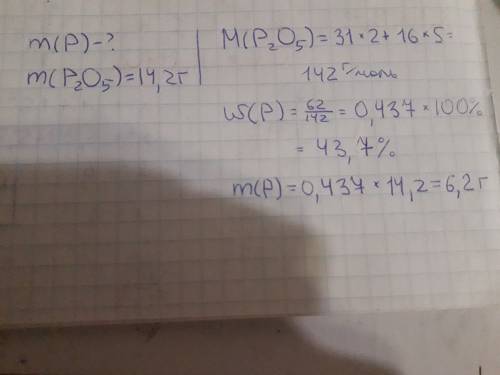 m(P)-?
m(P₂O₅)=14,2г
M(P₂O₅)=31*2+16*5=
142 г/моль
W(P)=62/142=0,437*100%
=43,7%
m(P)=0,437*14,2=6,2г